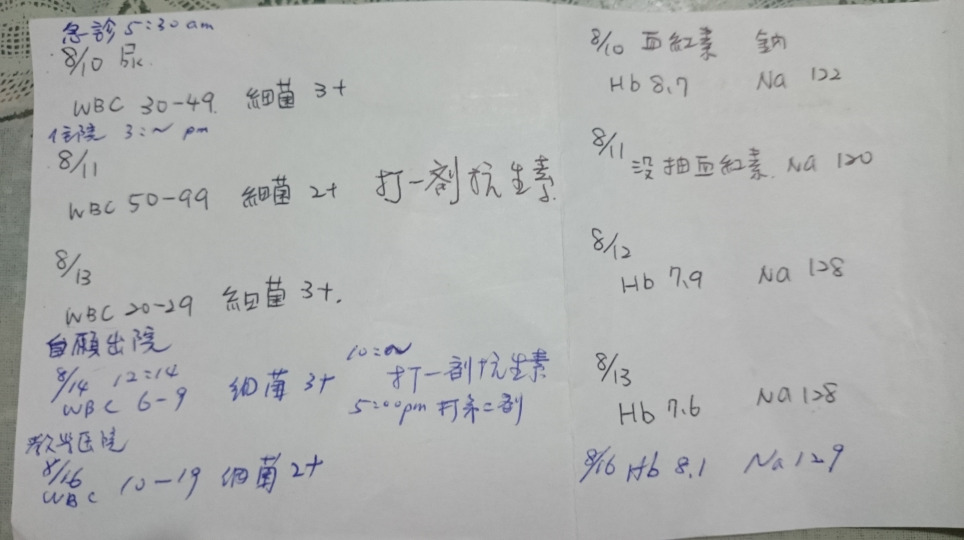 急診 5:30 am
8/10 尿
WBC 30-49 細菌 3+
住院 3:~ pm
8/11
WBC 50-99 細菌 2+ 打一劑抗生素
8/13
WBC 20-29 細菌 3+.
自願出院
8/14 12=14
WBC 6-9 細菌 3+
10:~
打一剤抗生素
5:00pm 打第二剤
医院
8/16
WBC 10-19 細菌 2+
8/10 血紅素 鈉
Hb 8.7 Na 122
8/11 沒抽血紅素. Na 120
8/12
Hb 7.9 Na 128
8/13
Hb 7.6 Na 128
8/16 Hb 8.1 Na 129